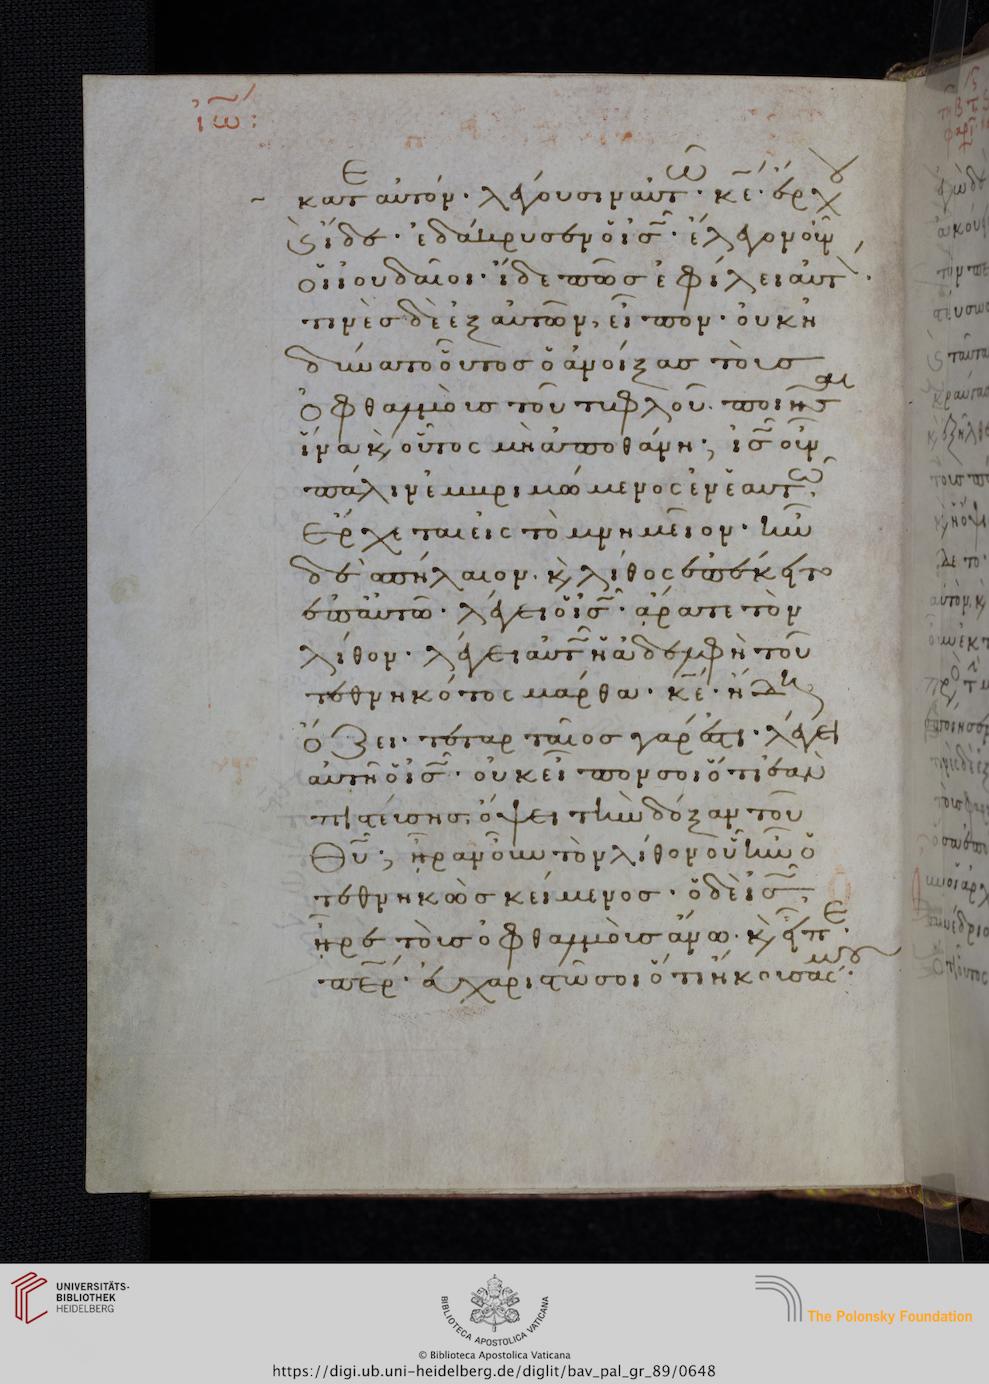 ἰω:
τεθείκατε αὐτόν· λέγουσιν αὐτῶ· κ̅ε̅· ἔρχου
ϗ ἴδε· ἐδάκρυσεν ὁ ι̅ς̅· ἔλεγον οὖν
οἱ ἰουδαῖοι· ἴδε πῶς ἐφίλει αὐτόν·
τινὲς δὲ ἐξ αὐτῶν εἶπον· οὐκ ἠ
δύνατο οὗτος ὁ ἀνοίξας τοὺς
ὀφθαλμοὺς τοῦ τυφλοῦ. ποιῆσαι
ἵνα ϗ οὗτος μὴ ἀποθάνη; ι̅ς̅ οὖν
πάλιν ἐμβριμώμενος ἐν ἑαυτῶ,
ἔρχεται εἰς τὸ μνημεῖον· ἦν
δὲ σπήλαιον. ϗ λίθος ἐπέκειτο
ἐπ' αὐτῶ· λέγει ὁ ι̅ς̅· ἄρατε τὸν
λίθον· λέγει αὐτῶ ἡ ἀδελφὴ τοῦ
τεθνηκότος μάρθα· κ̅ε̅· ἤδη
ὄζει· τεταρταῖος γάρ ἐστι· λέγει
αὐτῆ ὁ ι̅ς̅· οὐκ εἶπόν σοι ὅτι ἐὰν
πιστεύσης, ὄψει τὴν δόξαν τοῦ
θ̅υ̅; ἦραν οὖν τὸν λίθον οὗ ἦν ὁ
τεθνηκὼς κείμενος· ὁ δὲ ι̅ς̅
ἦρε τοὺς ὀφθαλμοὺς ἄνω. ϗ εἶπε·
π̅ε̅ρ̅· εὐχαριστῶ σοι ὅτι ἤκουσάς μου·
UNIVERSITÄTS-
BIBLIOTHEK
HEIDELBERG
BIBLIOTECA APOSTOLICA VATICANA
The Polonsky Foundation
© Biblioteca Apostolica Vaticana
https://digi.ub.uni-heidelberg.de/diglit/bav_pal_gr_89/0648